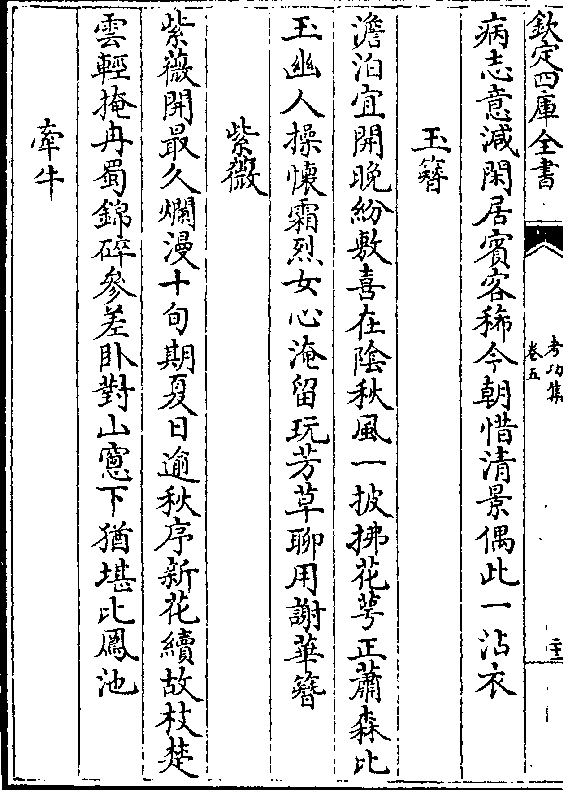 欽定四庫全書
考功集
卷五
病志意減閑居賓客稀今朝惜清景偶此一沾衣
玉簪
澹泊宜開晚紛敷喜在陰秋風一披拂花萼正蕭森比
玉幽人操懐霜烈女心淹留玩芳草聊用謝華簪
紫薇
紫薇開最久爛漫十旬期夏日逾秋序新花續故枝楚
雲輕掩冉蜀錦碎參差卧對山窻下猶堪比鳳池
牽牛